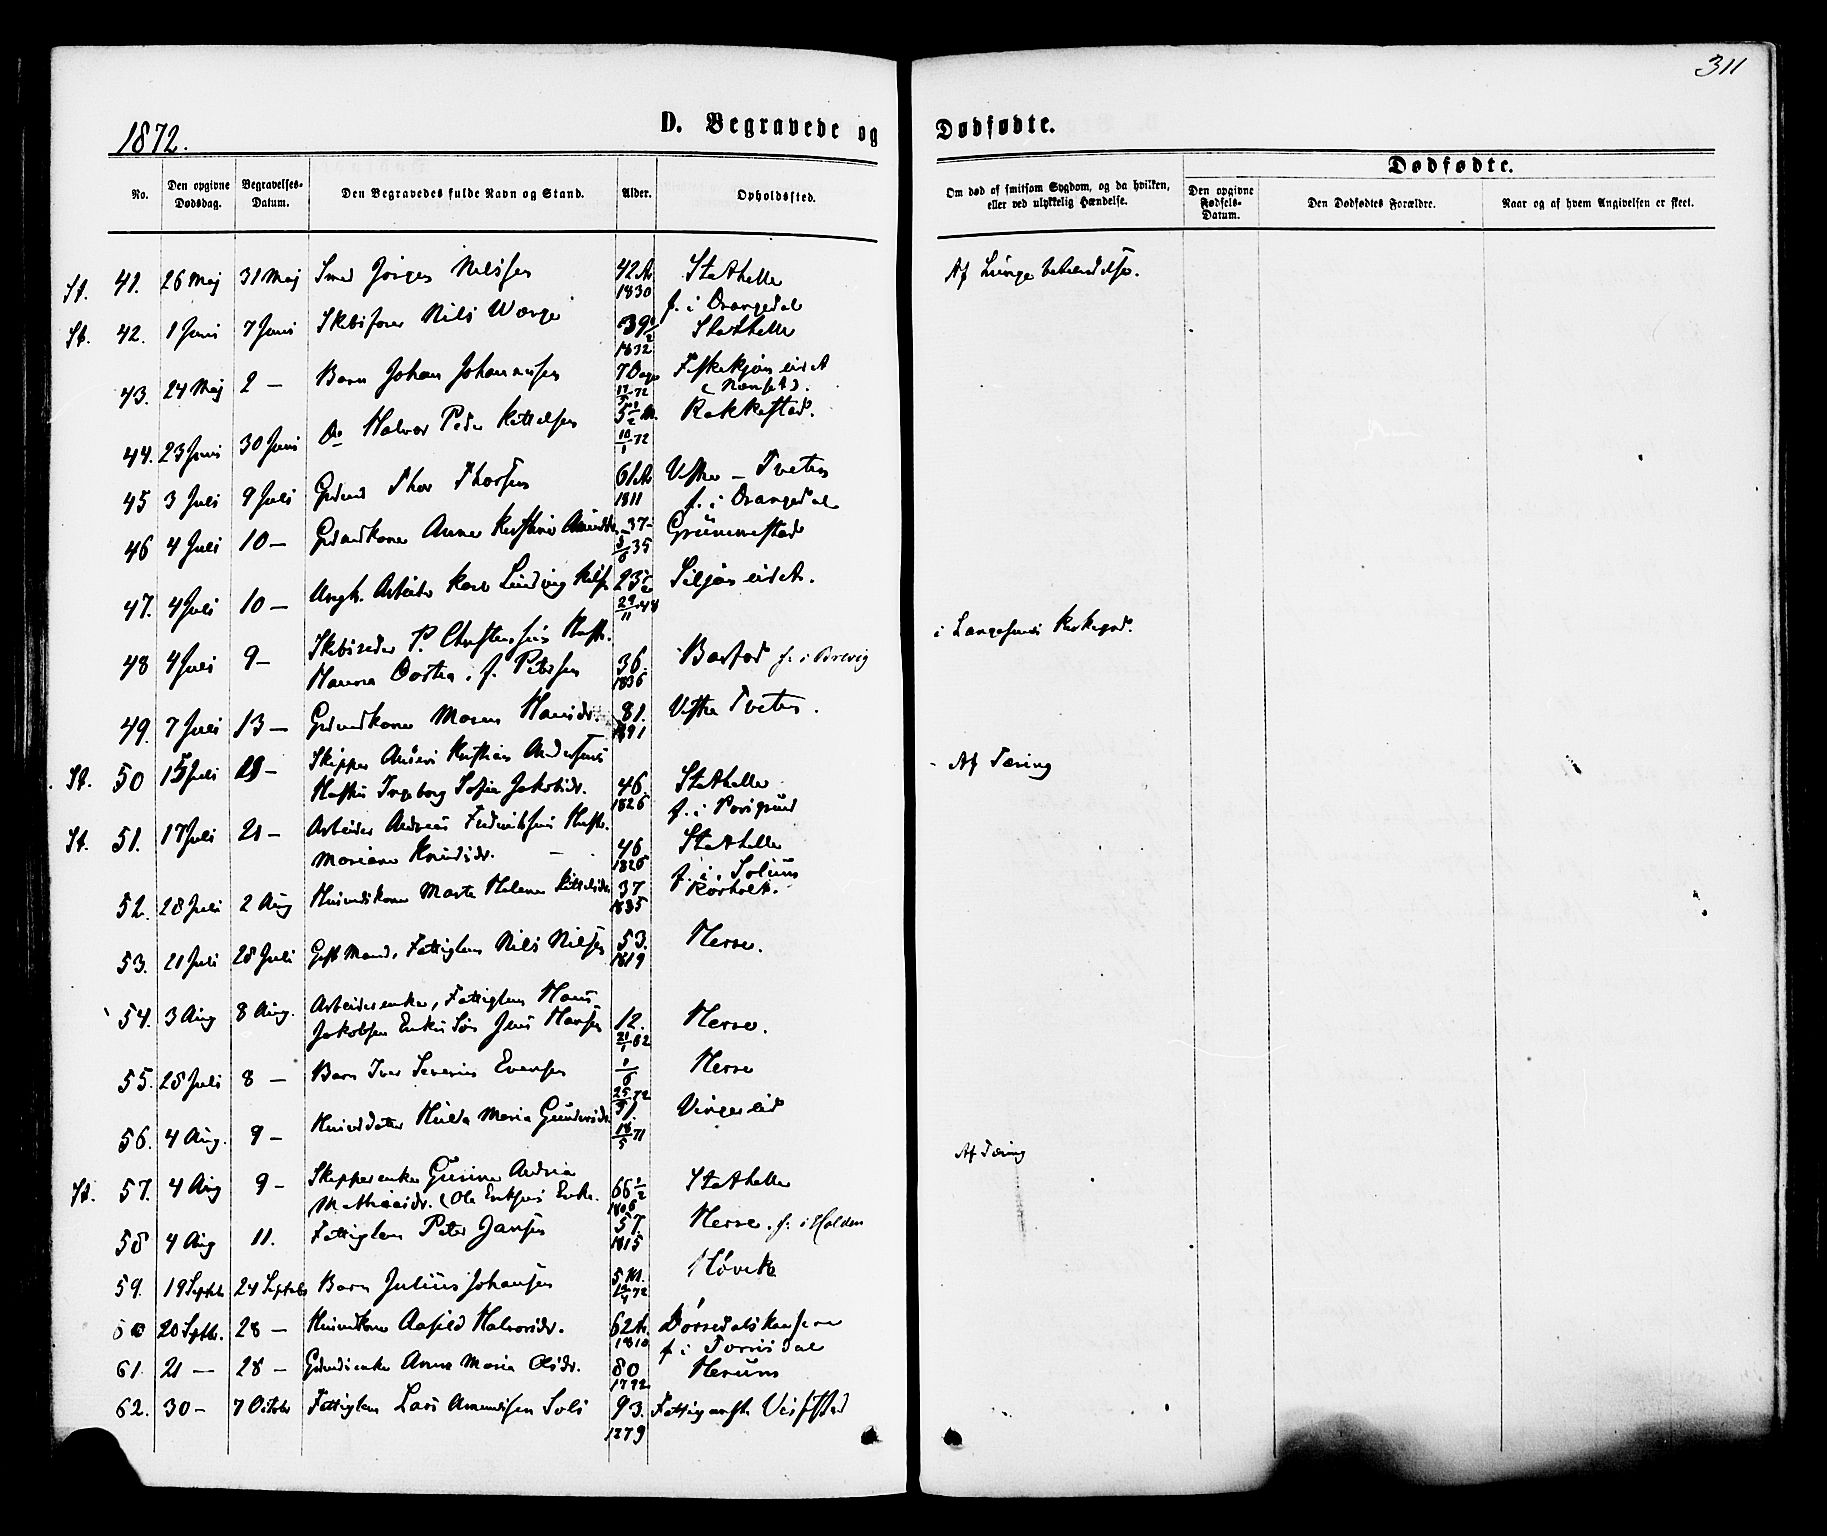 311
1872.
D. Begravede og
Dødfødte.
No.
Den opgivne Dødsdag.
Begravelses-Datum.
Den Begravedes fulde Navn og Stand.
Alder.
Opholdssted.
Om død af smitsom Sygdom, og da hvilken, eller ved ulykkelig Hændelse.
Dødfødte.
Den opgivne Fødsels-Datum.
Den Dødfødtes Forældre.
Naar og af hvem Angivelsen er skeet.
St. 41. 26 Maj 31 Maj Smed Jørgen Nilsen 42 Ar 1830 Stathelle f. i Drangedal Af Lunge betændelse.
St. 42. 1 Juni 7 Juni Skibsfører Nils Wærge 39 1/2 1832 Stathelle
43. 24 Maj 2 — Barn Johan Johannesen 7 Dage 17/5 72 Fiskekjøn eidet
44. 23 Juni 30 Juni Do Halvor Peder Kittilsen 5 1/2 M. 10/1 72 Rakkestad.
45 3 Juli 9 Juli Grdmd Thor Thorsen 61 Ar 1811 Vestre — Tveten f. i Drangedal
46 4 Juli 10 — Grdmdkone Anne Kirstine 37 — 5/6 35 Grummestad
47. 4 Juli 10 — Ungk. Arbeider Karl Ludvig 23 1/2 29/11 48 Siljan eidet.
48 4 Juli 9 — Skibsreder P. Christensens Hustr. Hanna Dortea. f. Petersen 36. 1836 Bastad f. i Brevig i Langesunds Kirkegrd.
49. 7 Juli 13 — Grdmdkone Maren Hansdr. 81. 1891 Vestre Tveten.
St. 50 15 Juli 19 — Skipper Kristian Andersens Hustru Ingeborg Sofie Jakobsdr. 46. 1826 Stathelle f. i Porsgrund Af Tæring
St. 51. 17 Juli 21 — Arbeider Andreas Frederiksens Hustr. Mariane Knudsdr. 46 1826 Stathelle f. i. Solum
52. 28 Juli 2 Aug Husmdkone Marte Helene Kittilsdr 37 1835 Rørholt.
53. 21 Juli 28 Juli Gift Mand, Fattiglem Nils Nilsen 53. 1819 Herre.
54. 3 Aug 8 Aug. Arbeiderenke, Fattiglem Hans Jakobsen Enkes Søn Jens Hansen 12. 21/1 62 Herre.
55. 28 Juli 8 — Barn Iver Severin Evensen 1/6 25/5 72 Herre
56. 4 Aug. 9 — Husmdsdatter Hulda Maria Gundersdr 1. 18/5 71 Vinger eid
St. 57. 4 Aug 9 — Skipperenke Gurine Andrea Mathiasdr. (Ole Eriksens Enke. 66 1/2 1806 Stathelle Af Tæring
58 4 Aug 11. Fattiglem Peter Jansen 57. 1815 Herre. f. i Holden
59. 19 Septbr 24 Septbr Barn Julius Johansen 5 M. 12/4 72
60 20 Septbr. 28 — Husmdkone Aasild Halvorsdr. 62 Ar. 1810 f. i Torrisdal
61. 21 — 28 — Grdmdsenke Anne Maria Olsdr. 80 1792 Herum
62. 30 — 7 October Fattiglem Lars Amundsen 93. 1779